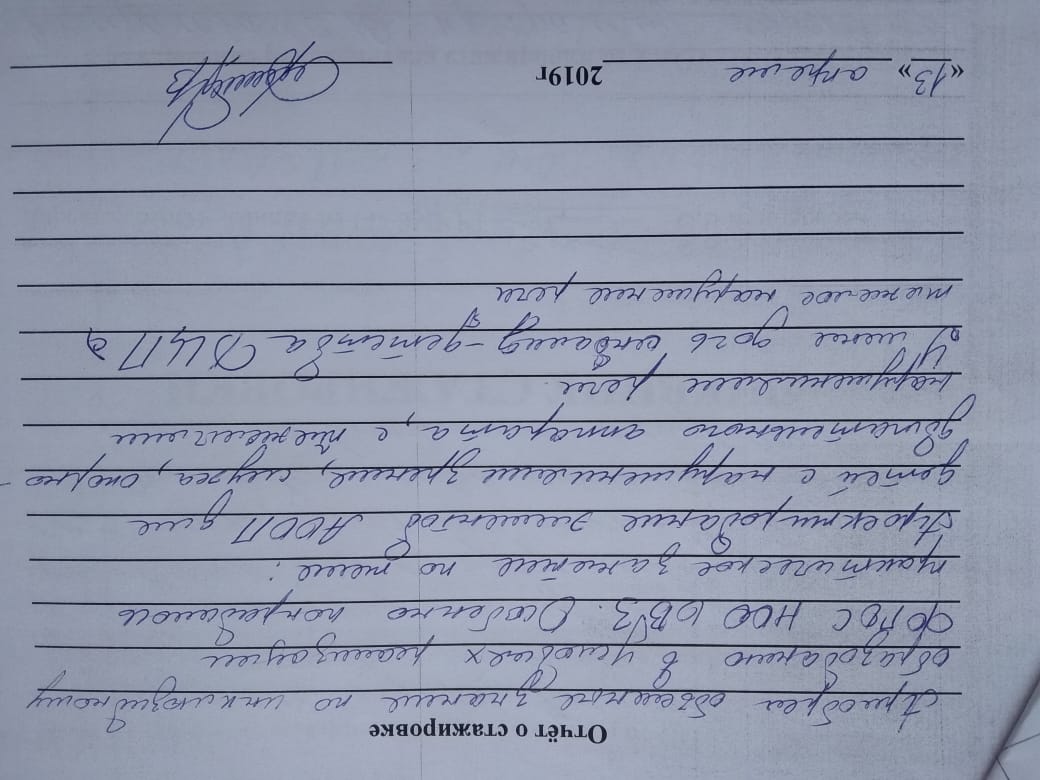 Отчёт о стажировке
Приобрел объемные знание по инклюзивному
образованию в условиях реализации
ФГОС НОО ОВЗ. Особенно понравилось
практическое занятие по теме:
Проектирование элементов АООП для
детей с нарушениями зрения, слуха, опорно-
двигательного аппарата, с тяжелыми
нарушениями речи.
У меня дочь инвалид-детства ДЦП,
тяжелое нарушение речи
«13» апреля 2019г